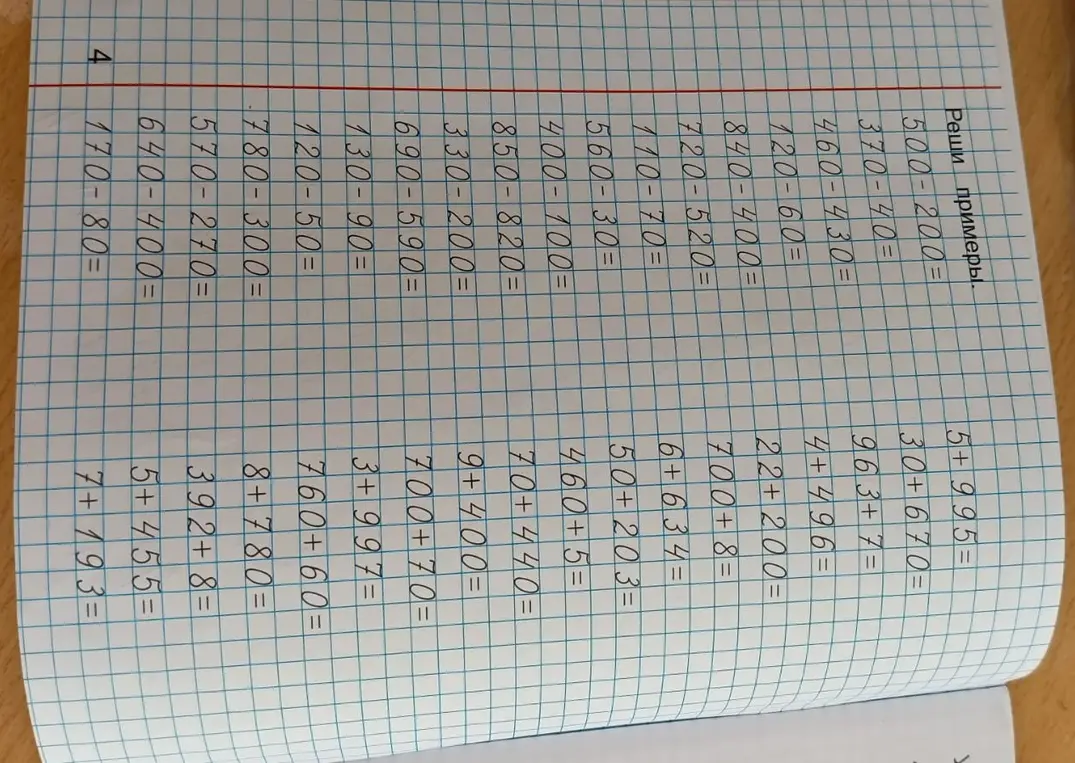 Реши примеры.
500-200= 5+995=
370-40= 30+670=
460-430= 963+7=
120-60= 4+496=
840-400= 22+200=
720-520= 700+8=
110-70= 6+634=
560-30= 50+203=
400-100= 460+5=
850-820= 70+440=
330-200= 9+400=
690-590= 700+70=
130-90= 3+997=
120-50= 760+60=
780-300= 8+780=
570-270= 392+8=
640-400= 5+455=
170-80= 7+193=
4